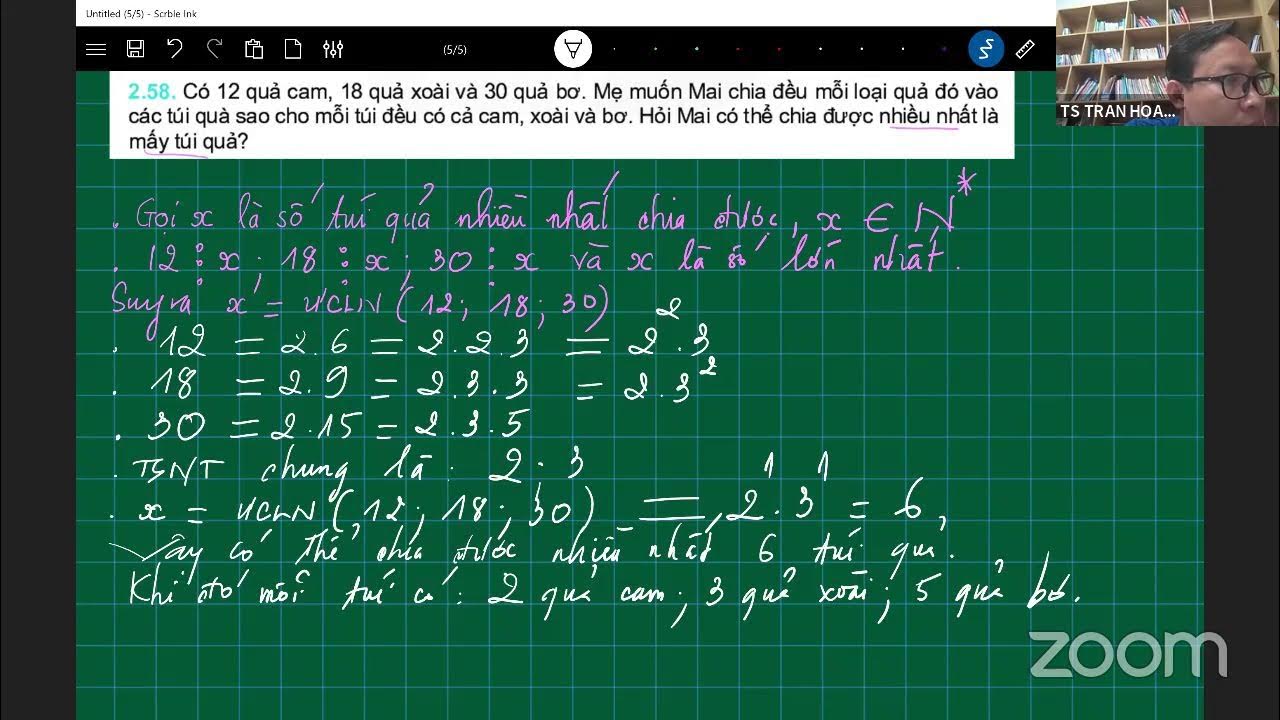 Untitled (5/5) - Scrble Ink
(5/5)
TS TRAN HOA...
2.58. Có 12 quả cam, 18 quả xoài và 30 quả bơ. Mẹ muốn Mai chia đều mỗi loại quả đó vào
các túi quà sao cho mỗi túi đều có cả cam, xoài và bơ. Hỏi Mai có thể chia được nhiều nhất là
mấy túi quà?
. Gọi x là số túi quả nhiều nhất chia được, x ∈ N*
. 12 ⋮ x ; 18 ⋮ x ; 30 ⋮ x và x là số lớn nhất.
Suy ra x = ƯCLN (12; 18; 30)
. 12 = 2.6 = 2.2.3 = 2².3
. 18 = 2.9 = 2.3.3 = 2.3²
. 30 = 2.15 = 2.3.5
. TSNT chung là : 2 ; 3
. x = ƯCLN (12; 18; 30) = 2¹.3¹ = 6,
Vậy có thể chia được nhiều nhất 6 túi quà.
Khi đó mỗi túi có : 2 quả cam ; 3 quả xoài ; 5 quả bơ.
zoom